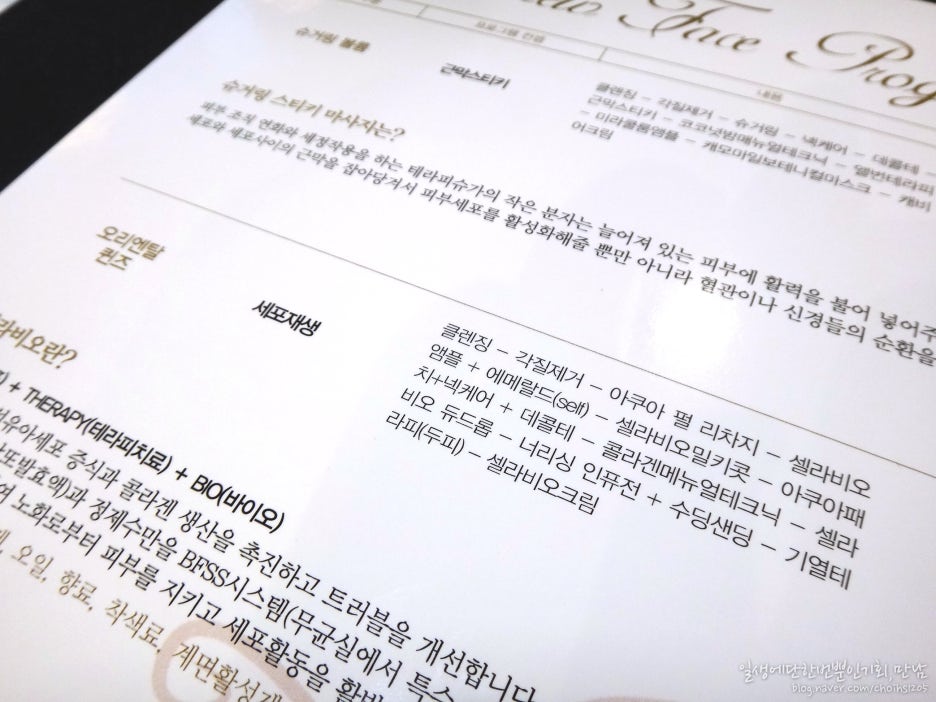 Face Prog
프로그램 컨셉
내용
슈거링 볼륨
근막스티키
클렌징 - 각질제거 - 슈거링 - 넥케어 - 데콜테 -
근막스티키 - 코코넛밤매뉴얼테크닉 - 앨번테라피
- 미라콜롬앰플 - 캐모마일보테니컬미스크 - 캐비
어크림
슈거링 스티키 마사지는?
피부 조직 연화와 세정작용을 하는 테라피슈가의 작은 분자는 늘어져 있는 피부에 활력을 불어 넣어주
세포와 세포사이의 근막을 잡아당겨서 피부세포를 활성화해줄 뿐만 아니라 혈관이나 신경들의 순환을
오리엔탈
퀸즈
세포재생
클렌징 - 각질제거 - 아쿠아 필 리차지 - 셀라비오
앰플 + 에메랄드(self) - 셀라비오밀키콧 - 아쿠아패
치+넥케어 + 데콜테 - 콜라겐메뉴얼테크닉 - 셀라
비오 듀드롭 - 너리싱 인퓨전 + 수딩샌딩 - 기열테
라피(두피) - 셀라비오크림
라비오란?
+ THERAPY(테라피치료) + BIO(바이오)
섬유아세포 증식과 콜라겐 생산을 촉진하고 트러블을 개선합니다
과 정제수만을 BFSS시스템(무균실에서 특수
여 노화로부터 피부를 지키고 세포활동을 활발
오일, 향료, 착색료, 계면활성제
일생에단한번뿐인기회,만남
blog.naver.com/choihs1205